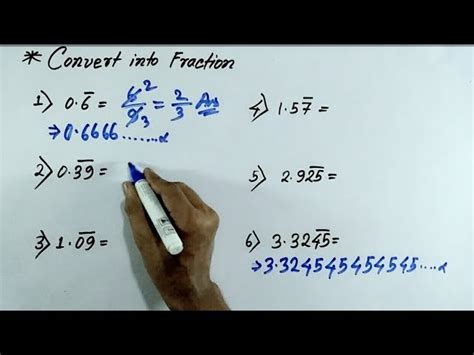 * Convert into Fraction
1) 0.6̅ = 6̶² / 9̶₃ = 2/3 Ans
⇒ 0.6666.......α
2) 0.3̅9̅ =
3) 1.0̅9̅ =
4) 1.57̅ =
5) 2.92̅5̅ =
6) 3.324̅5̅ =
⇒ 3.324545454545....α